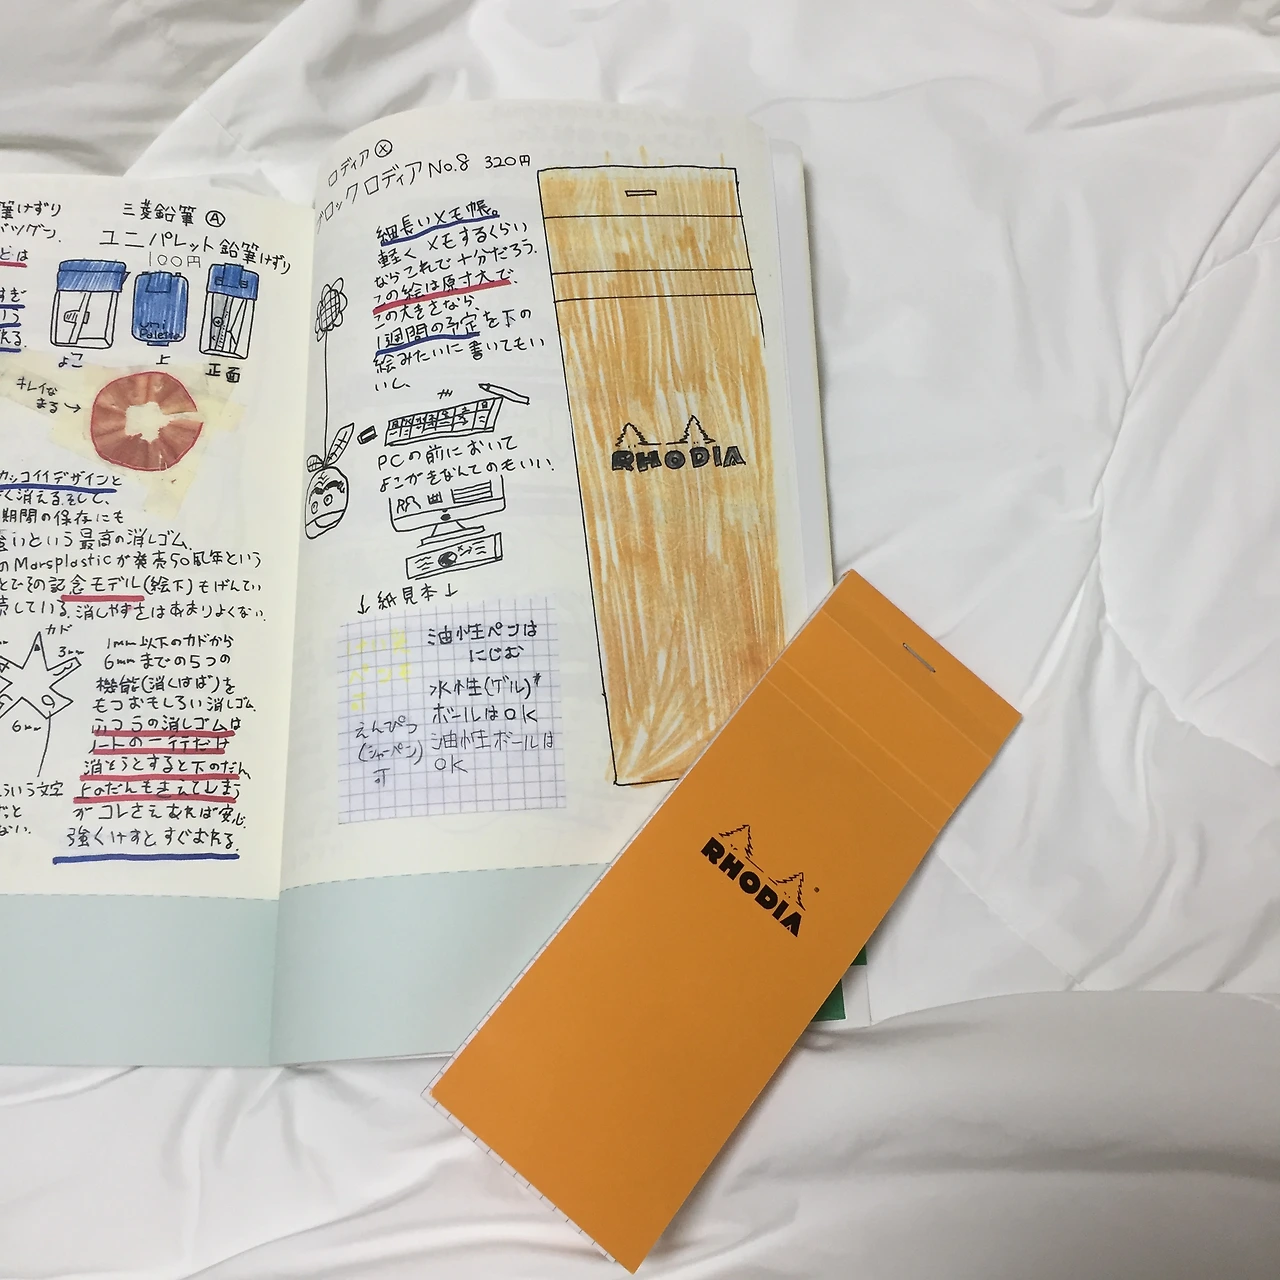 筆けずり
バツグン.
三菱鉛筆 Ⓐ
ユニ パレット 鉛筆けずり
100円
uni
Palette
よこ
上
正面
キレイな
まる→
カッコイイデザインと
く消える.そして、
期間の保存にも
いという最高の消しゴム.
のMarsplasticが発売50周年という
とでその記念モデル(絵下)もげんてい
売している.消しやすさはあまりよくない.
カド
3mm
6mm
1mm以下のカドから
6mmまでの5つの
機能(消しはば)を
もつおもしろい消しゴム.
ふつうの消しゴムは
ノートの一行だけ
消そうとすると下のだん
上のだんもきえてしまう
がコレさえあれば安心.
強くけすとすぐおれる.
ういう文字
ロディア Ⓧ
ブロック ロディア No.8 320円
細長いメモ帳。
軽くメモするくらい
ならこれで十分だろう.
この絵は原寸大で、
この大きさなら、
1週間の予定を下の
絵みたいに書いてもい
いし、
PCの前において
よこがきなんてのもいい.
↓紙見本↓
油性ペンは
にじむ
水性(ゲル)
ボールはOK
えんぴつ
(シャーペン)
可
油性ボールは
OK
RHODIA
RHODIA